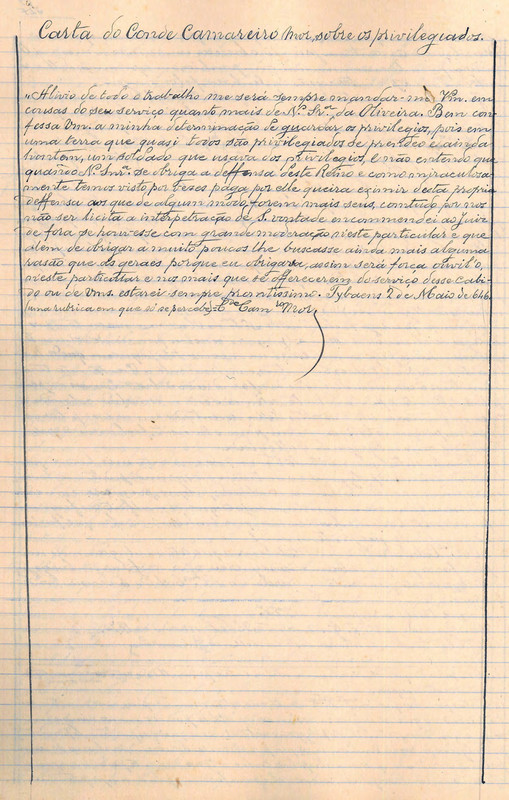 Carta do Conde Camareiro Mor, sobre os privilegiados.
"Alivio de todo o trabalho me será sempre mandar-me Vm. em
cousas do seu serviço quanto mais de N.ª Sr.ª da Oliveira. Bem con-
fessa Vm. a minha determinação de guardar os privilegios, pois em
uma terra que quasi todos são privilegiados se prendeo e ainda
hontem, um soldado que usava dos privilegios, e não entendo que
quando N.ª Snr.ª se obriga a deffensa deste Reino e como miraculosa-
mente temos visto por vezes paga por elle queira eximir desta propria
deffensa aos que de algum modo forem mais seus, comtudo por nos
não ser licita a interpetração de S. vontade encommendei ao Juiz
de fora se houvesse com grande moderação n'este particular e que
alem de obrigar a muito poucos lhe buscasse ainda mais alguma
rasão que as geraes porque eu obrigara, assim será força ouvil-o,
n'este particular e nos mais que se offerecerem do serviço desse cabi-
do ou de Vms. estarei sempre promtissimo. 2 de Maio de 646.
(uma rubrica em que só se percebe) Cam.ro Mor